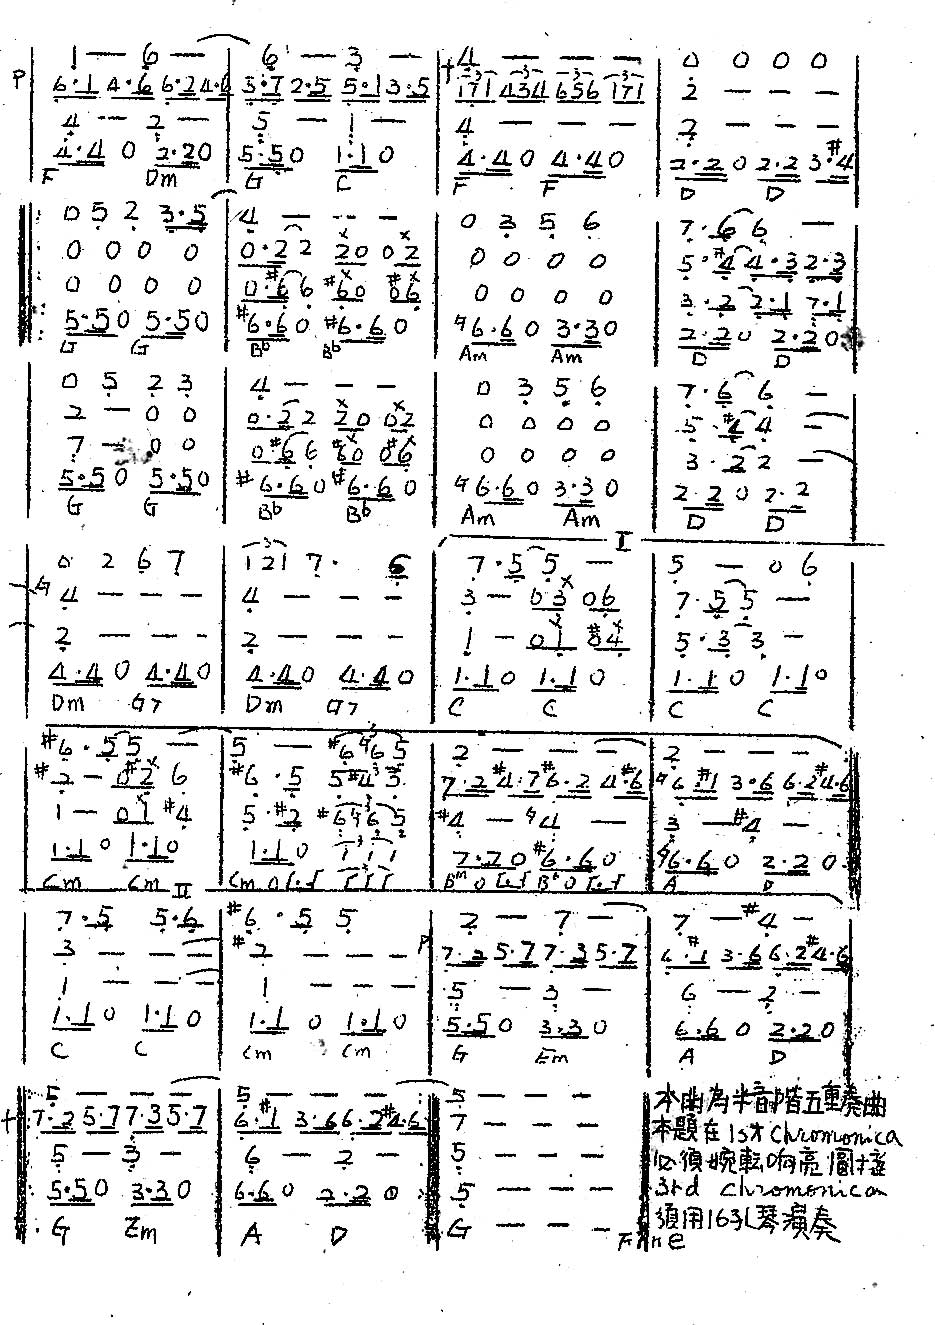 1 — 6 — | 6 — 3 — | 4 — — — | 0 0 0 0
P 6·1 4·6 6·2 4·6 | 3·7 2·5 5·1 3·5 | 171 434 656 171 | 2 — — —
4 — 2 — | 5 — 1 — | 4 — — — | 2 — — —
4·4 0 2·2 0 | 5·5 0 1·1 0 | 4·4 0 4·4 0 | 2·2 0 2·2 3·#4
F Dm G C F F D D
0 5 2 3·5 | 4 — — — | 0 3 5 6 | 7·6 6 —
0 0 0 0 | 0·2 2 2 0 0 2 | 0 0 0 0 | 5·#4 4·3 2·3
0 0 0 0 | 0·#6 6 #6 0 #0 6 | 0 0 0 0 | 3·2 2·1 7·1
5·5 0 5·5 0 | #6·6 0 #6·6 0 | ♮6·6 0 3·3 0 | 2·2 0 2·2 0
G G Bb Bb Am Am D D
0 5 2 3 | 4 — — — | 0 3 5 6 | 7·6 6 —
2 — 0 0 | 0·2 2 2 0 0 2 | 0 0 0 0 | 5·#4 4 —
7 — 0 0 | 0 #6 6 #6 0 #0 6 | 0 0 0 0 | 3·2 2 —
5·5 0 5·5 0 | #6·6 0 #6·6 0 | ♮6·6 0 3·3 0 | 2·2 0 2·2
G G Bb Bb Am Am D D
I
0 2 6 7 | 121 7· 6 | 7·5 5 — | 5 — 0 6
♮4 — — — | 4 — — — | 3 — 0 3 0 6 | 7·5 5 —
2 — — — | 2 — — — | 1 — 0 1 #0 4 | 5·3 3 —
4·4 0 4·4 0 | 4·4 0 4·4 0 | 1·1 0 1·1 0 | 1·1 0 1·1 0
Dm G7 Dm G7 C C C C
#6·5 5 — | 5 — #6 ♮6 5 | 2 — — — | 2 — — —
#2 — 0 #2 6 | #6·5 5 #4 3 | 7·2 #4·7 #6·2 4·#6 | ♮6·#1 3·6 6·2 #4·6
1 — 0 1 #4 | 5·#2 #6 ♮6 5 | #4 — ♮4 — | 3 — #4 —
1·1 0 1·1 0 | 1·1 0 1 1 1 | 7·7 0 #6·6 0 | ♮6·6 0 2·2 0
Cm Cm Cm A D
II
7·5 5·6 | #6·5 5 | 2 — 7 — | 7 — #4 —
3 — — — | #2 — — — | P 7·2 5·7 7·3 5·7 | 6·#1 3·6 6·2 #4·6
1 — — — | 1 — — — | 5 — 3 — | 6 — 2 —
1·1 0 1·1 0 | 1·1 0 1·1 0 | 5·5 0 3·3 0 | 6·6 0 2·2 0
C C Cm Cm G Em A D
5 — — — | 5 — — — | 5 — — —
7·2 5·7 7·3 5·7 | 6·#1 3·6 6·2 #4·6 | 7 — — —
5 — 3 — | 6 — 2 — | 5 — — —
5·5 0 3·3 0 | 6·6 0 2·2 0 | 5 — — —
G Em A D G — — —
Fine
本曲為半音階五重奏曲
本題在1st chromonica
必須婉転响亮圓
3rd chromonica
須用16孔琴演奏